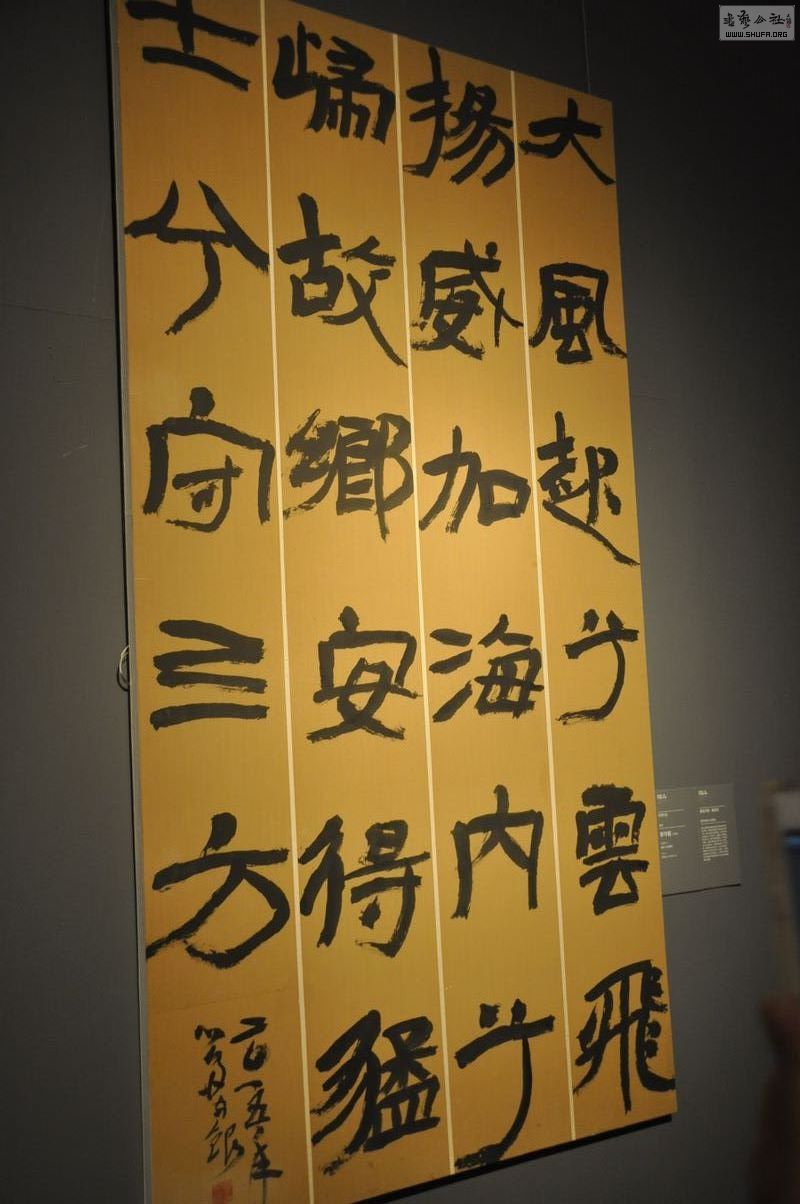 大風起兮雲飛
揚威加海内兮
歸故鄉安得猛
士兮守亖方
書藝公社
WWW.SHUFA.ORG